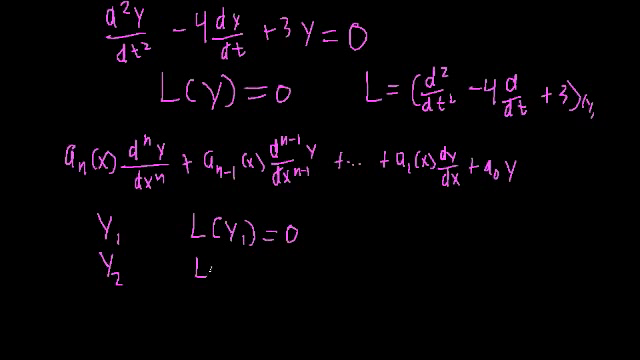 d²y/dt² - 4 dy/dt + 3y = 0
L(y) = 0    L = (d²/dt² - 4 d/dt + 3)(y)
aₙ(x) dⁿy/dxⁿ + aₙ₋₁(x) dⁿ⁻¹y/dxⁿ⁻¹ + ... + a₁(x) dy/dx + a₀ y
y₁    L(y₁) = 0
y₂    L